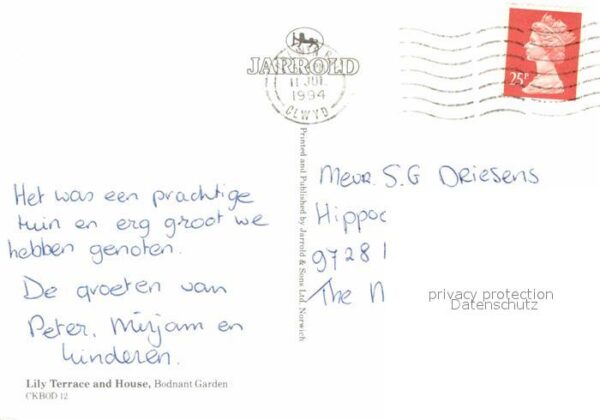 JARROLD
11 JUL
1994
CLWYD
25P
Het was een prachtige
tuin en erg groot we
hebben genoten.
De groeten van
Peter, Mirjam en
kinderen.
Lily Terrace and House, Bodnant Garden
CKBOD 12
Printed and Published by Jarrold & Sons Ltd. Norwich
Mevr. S.G Driesens
Hippoc
9728 1
The N
privacy protection
Datenschutz